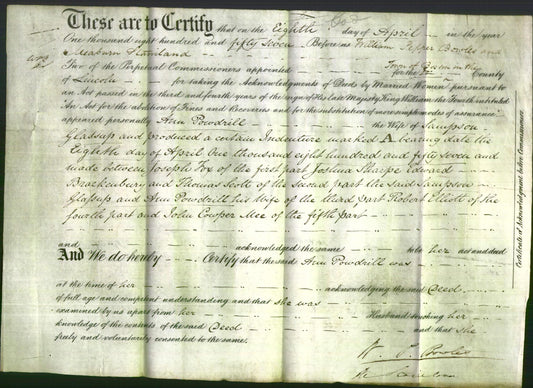 These are to Certify that on the Eighth day of April in the year
One thousand eight hundred and fifty Seven Before us William Pepper Bowles and
Two of the Perpetual Commissioners appointed for the County
Town of Boston in the
of Lincoln for taking the Acknowledgments of Deeds by Married Women pursuant to
an Act passed in the third and fourth years of the reign of His late Majesty King William the Fourth intituled
"An Act for the abolition of Fines and Recoveries and for the substitution of more simple modes of assurance"
appeared personally Ann Powdrill the Wife of Sampson
Glassup and produced a certain Indenture marked A bearing date the
Eighth day of April One thousand eight hundred and fifty seven and
made between Joseph Foe of the first part Joshua Sharpe Edward
Brackenbury and Thomas Scott of the second part the said Sampson
Glassup and Ann Powdrill his Wife of the third part Robert Elliott of the
fourth part and John Cowper Mee of the fifth part
and acknowledged the same to be her act and deed
And We do hereby Certify that the said Ann Powdrill was
at the time of her acknowledging the said Deed
of full age and competent understanding and that she was
examined by us apart from her Husband touching her
knowledge of the contents of the said Deed and that she
freely and voluntarily consented to the same.
W. P. Bowles
Certificate of Acknowledgment before Commissioners